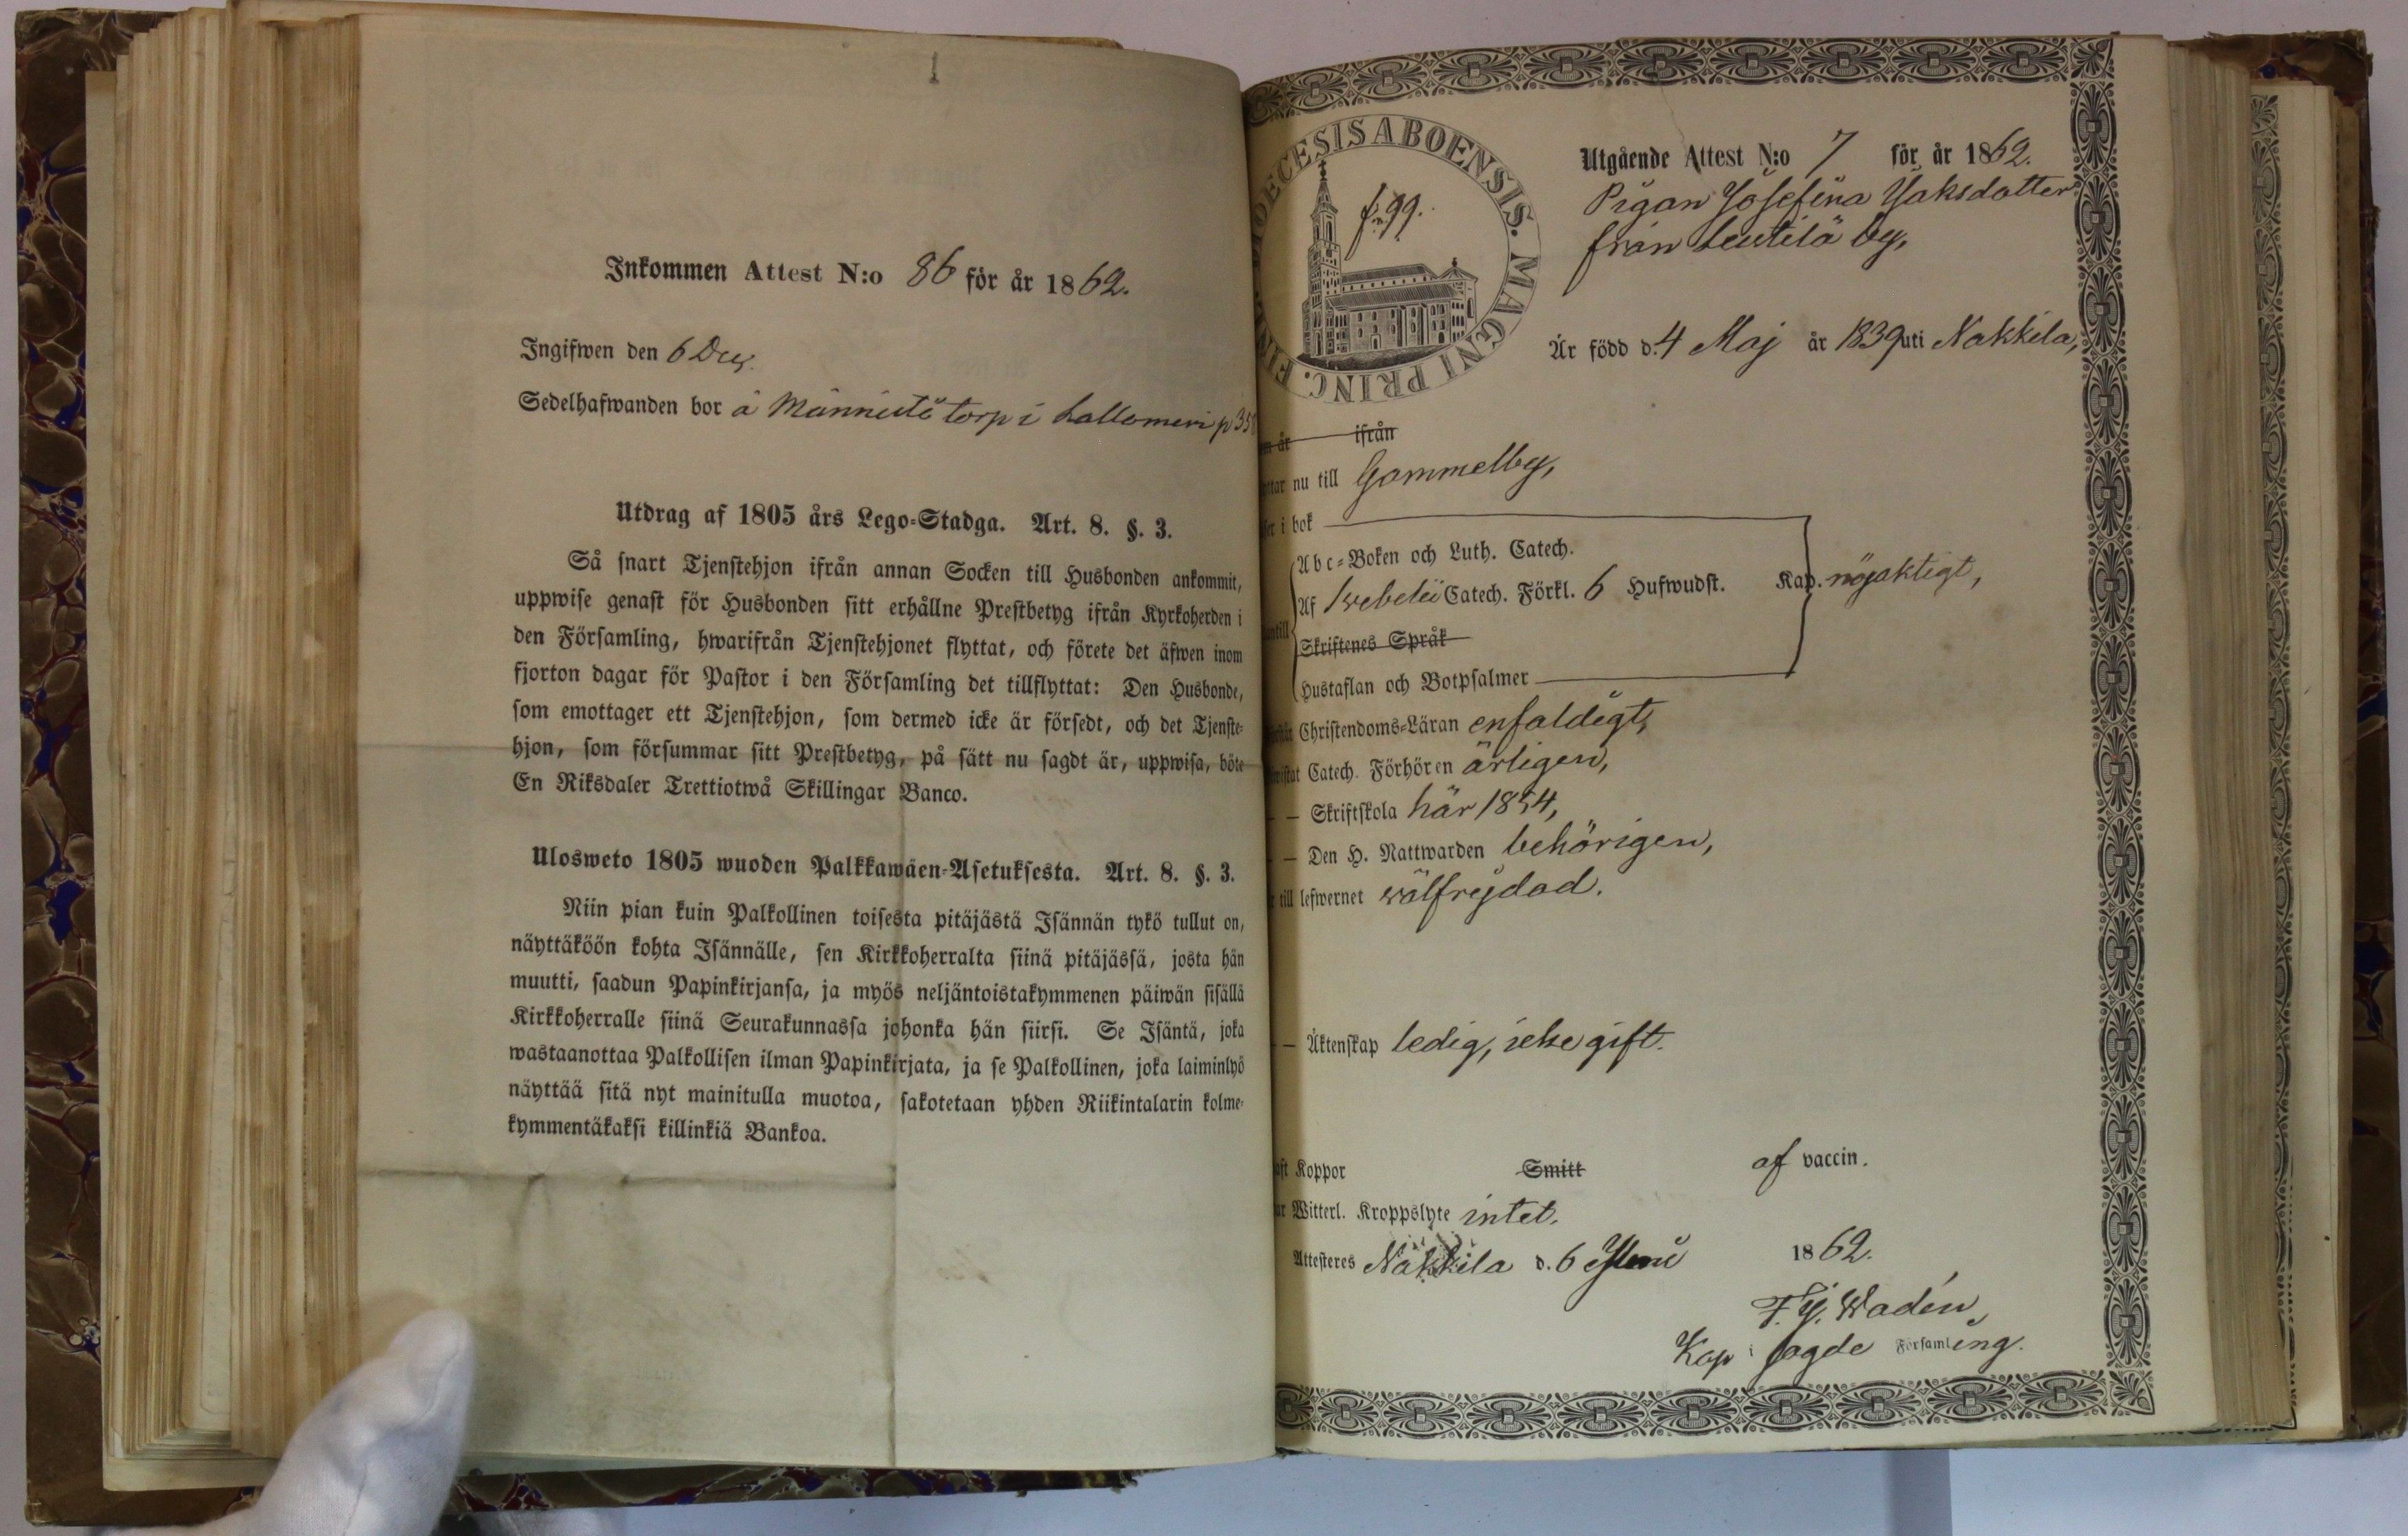 Inkommen Attest N:o 86 för år 1862.
Ingifwen den 6 Decr.
Sedelhafwanden bor å Männistö torp i Lallomeri p 358
Utdrag af 1805 års Lego-Stadga. Art. 8. §. 3.
Så snart Tjenstehjon ifrån annan Socken till Husbonden ankommit,
uppwise genast för Husbonden sitt erhållne Prestbetyg ifrån Kyrkoherden i
den Församling, hwarifrån Tjenstehjonet flyttat, och förete det äfwen inom
fjorton dagar för Pastor i den Församling det tillflyttat: Den Husbonde,
som emottager ett Tjenstehjon, som dermed icke är försedt, och det Tjenste-
hjon, som försummar sitt Prestbetyg, på sätt nu sagdt är, uppwisa, böte
En Riksdaler Trettiotwå Skillingar Banco.
Ulosweto 1805 wuoden Palkkawäen-Asetuksesta. Art. 8. §. 3.
Niin pian kuin Palkollinen toisesta pitäjästä Isännän tykö tullut on,
näyttäköön kohta Isännälle, sen Kirkkoherralta siinä pitäjässä, josta hän
muutti, saadun Papinkirjansa, ja myös neljäntoistakymmenen päiwän sisällä
Kirkkoherralle siinä Seurakunnassa johonka hän siirsi. Se Isäntä, joka
wastaanottaa Palkollisen ilman Papinkirjata, ja se Palkollinen, joka laiminlyö
näyttää sitä nyt mainitulla muotoa, sakotetaan yhden Riikintalarin kolme-
kymmentäkaksi killinkiä Bankoa.
DIOECESIS ABOENSIS. MAGNI PRINC. FINL.
f. 99.
Utgående Attest N:o 7 för år 1862.
Pigan Josefina Isaksdotter
från Leistilä by,
Är född d. 4 Maj år 1839 uti Nakkila,
år ifrån
nu till Gammelby,
i bok
Abc-Boken och Luth. Catech.
Af Swebelii Catech. Förkl. 6 Hufwudst. Kap. nöjaktigt,
Skriftenes Språk
Hustaflan och Botpsalmer
Christendoms-Läran enfaldigt,
Catech. Förhören årligen,
— Skriftskola här 1854,
— Den H. Nattwarden behörigen,
till lefwernet wälfrejdad.
— Äktenskap ledig, icke gift.
Koppor Smitt af vaccin.
Witterl. Kroppslyte intet.
Attesteres Nakkila d. 6 1862.
F. J. Wadén,
Kap i sagde Församling.